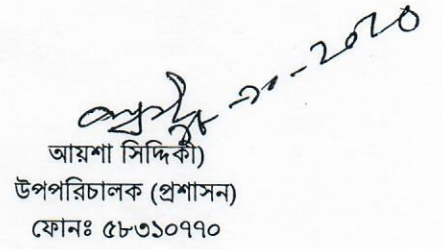 আয়শা সিদ্দিকা)
উপপরিচালক (প্রশাসন)
ফোনঃ ৫৮৩১০৭৭০